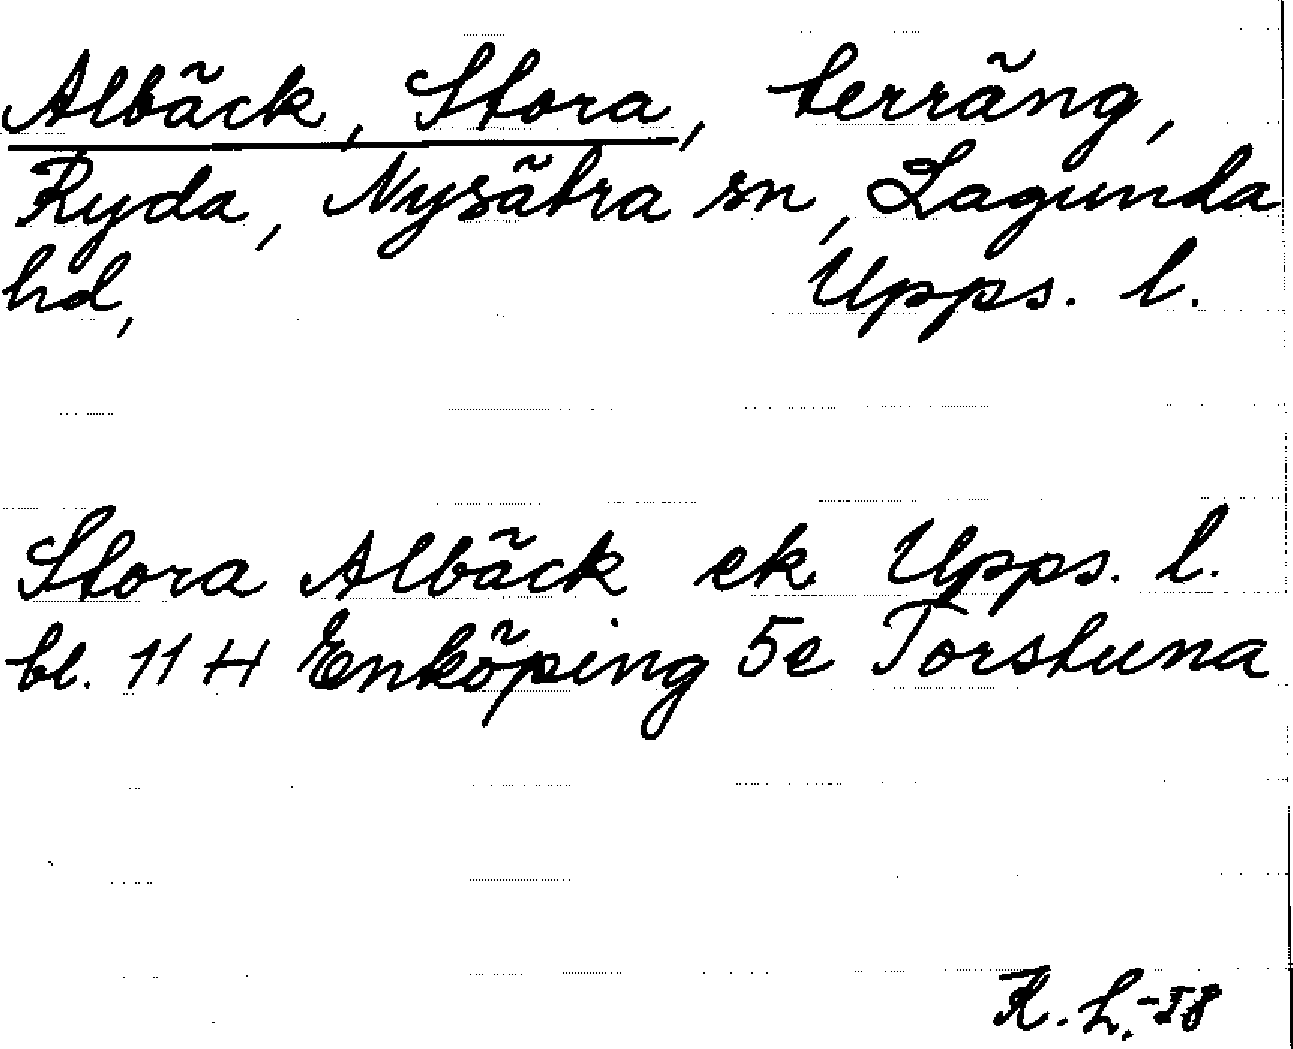 Albäck, Stora, terräng,
Ryda, Nysätra sn, Lagunda
hd, Upps. l.
Stora Albäck ek Upps. l.
bl. 11 H Enköping 5e Torstuna
R. L. -58